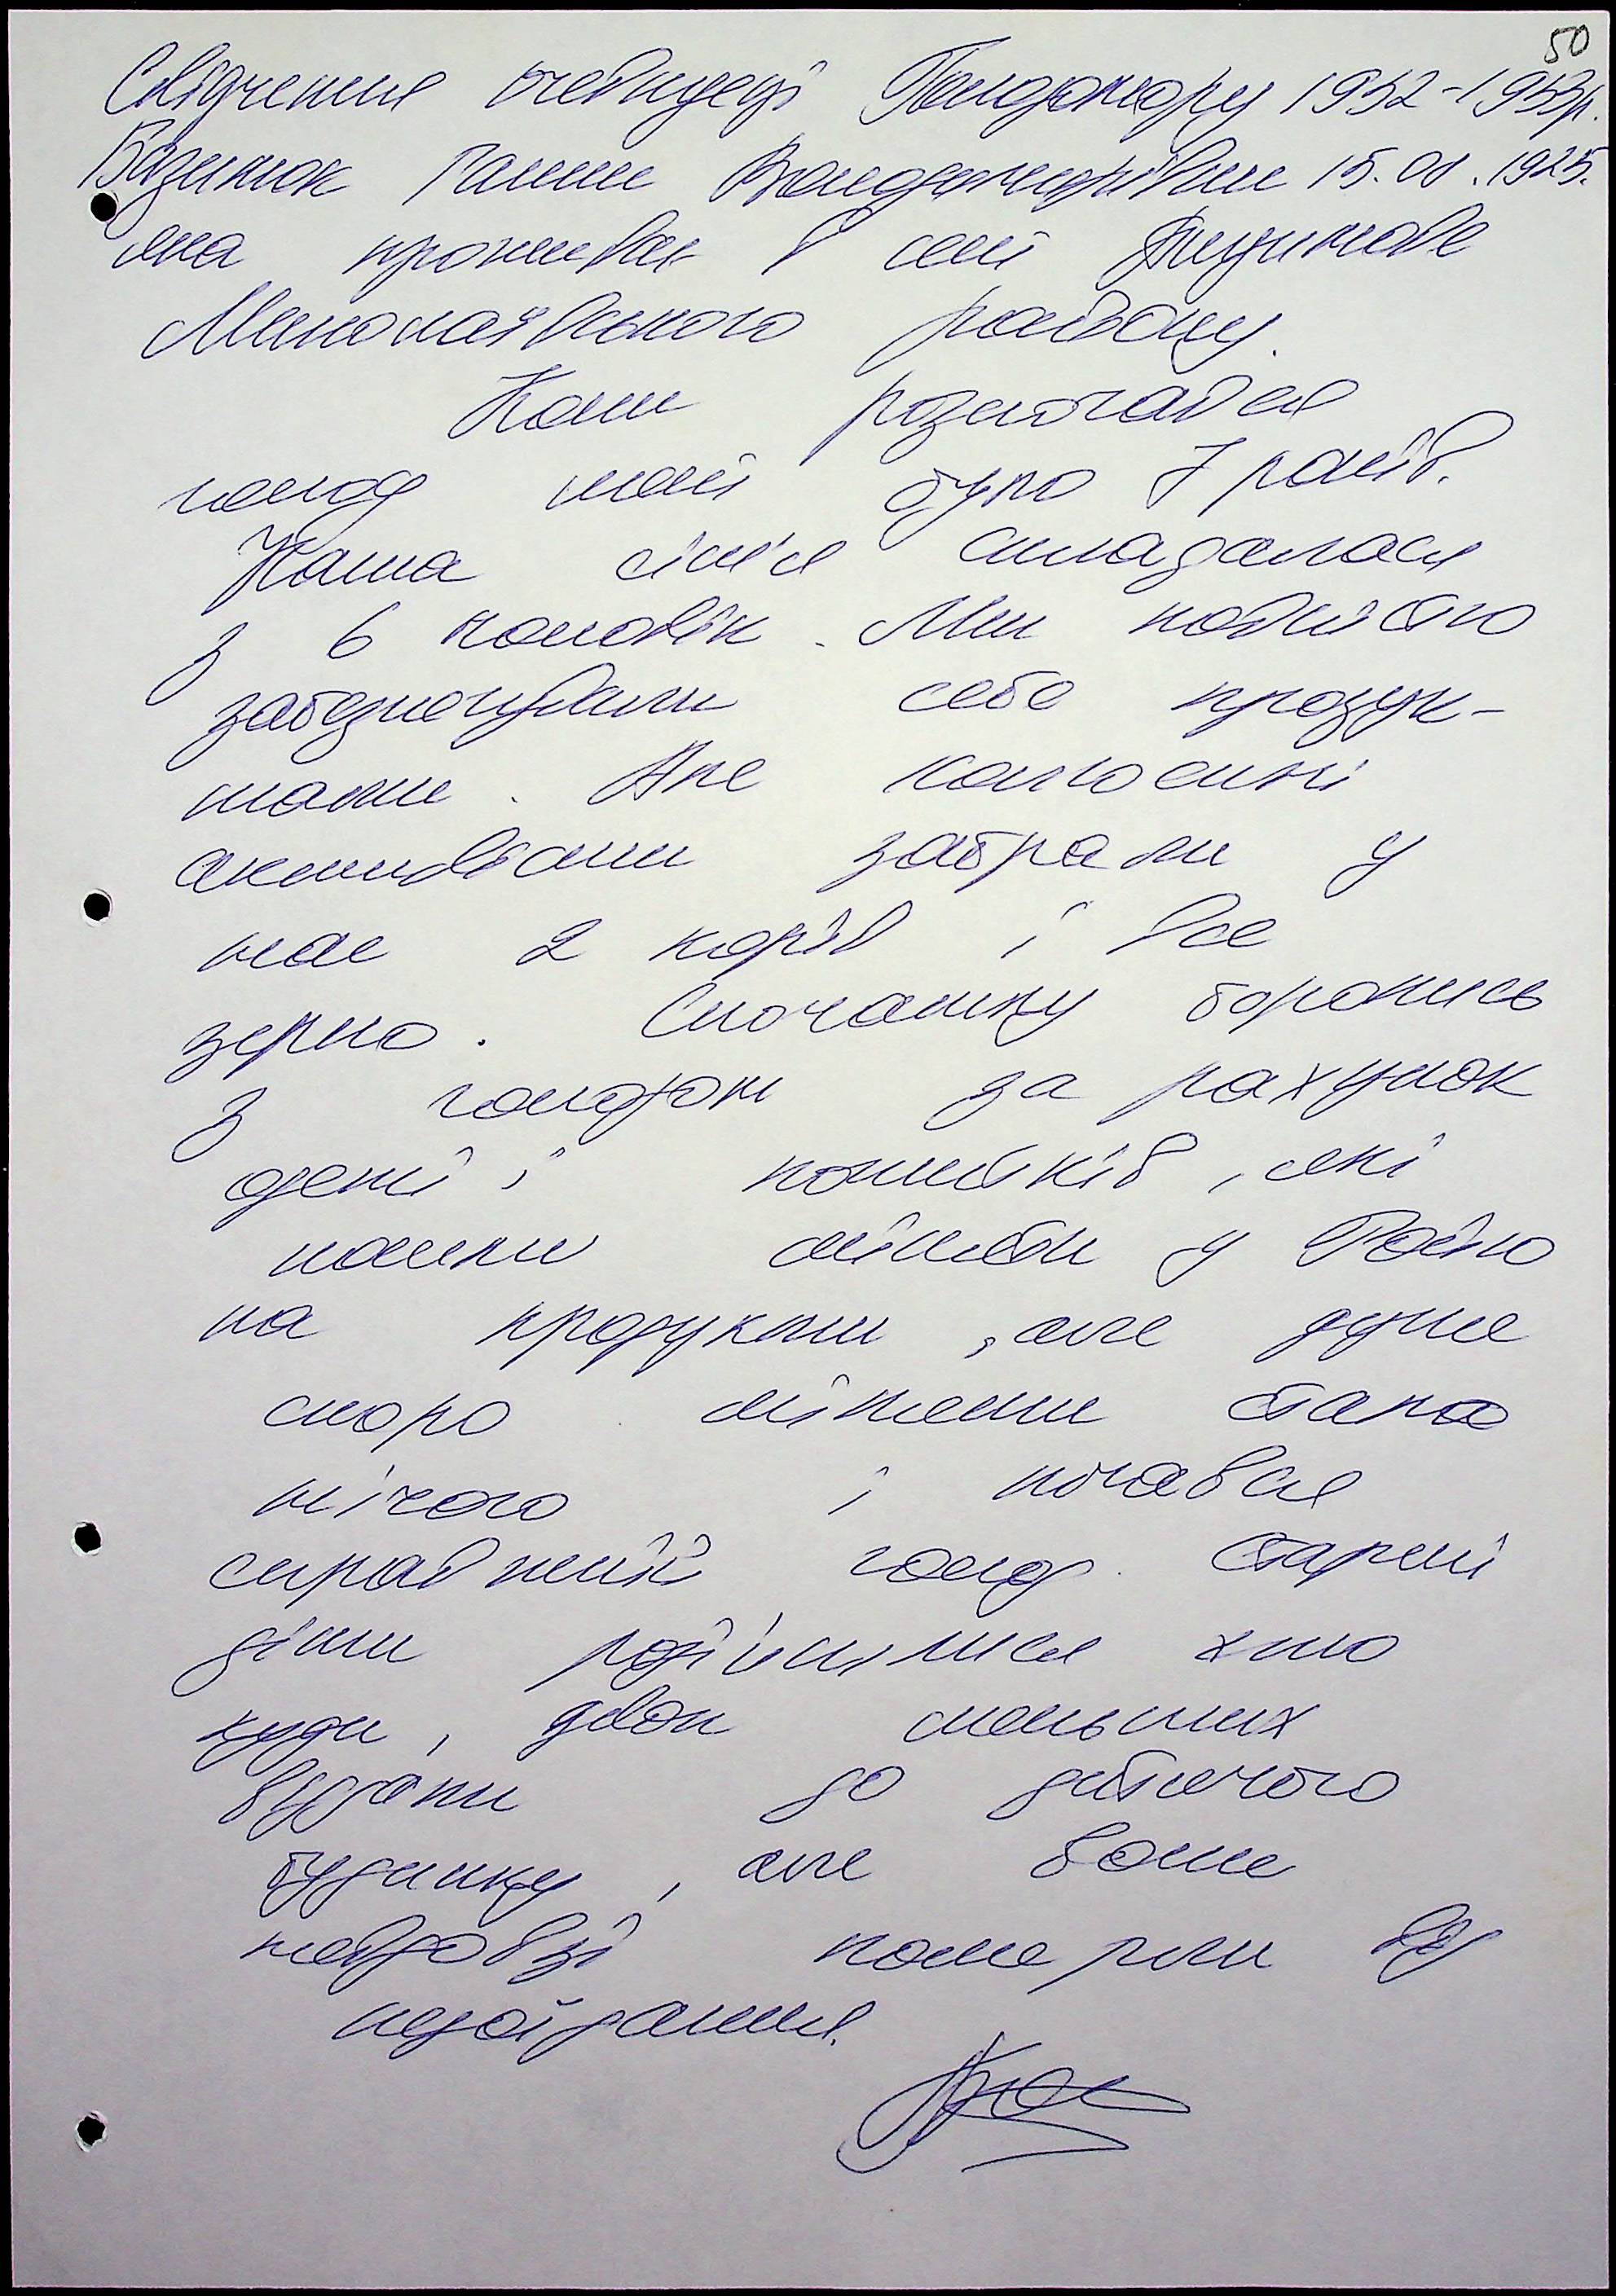 50
Свідчення очевидеці Голодомору 1932-1933р.
Базилюк Ганни Володимирівни 15.01.1925.
яка проживає в селі
Миколаївського району.
Коли розпочався
голод мені було 7 років.
Наша сім'я складалася
з 6 чоловік. Ми повністю
забезпечували себе продук-
тами. Але колгоспні
активісти забрали у
нас 2 корів і все
зерно. Спочатку боролись
з голодом за рахунок
одежі і пожитків, які
мали міняти у
на продукти, але дуже
скоро міняти стало
нічого і почався
справжній голод. Старші
діти розійшлися хто
куди, двох меньших
віддали до дитячого
будинку, але вони
невдовзі померли від
недоїдання.